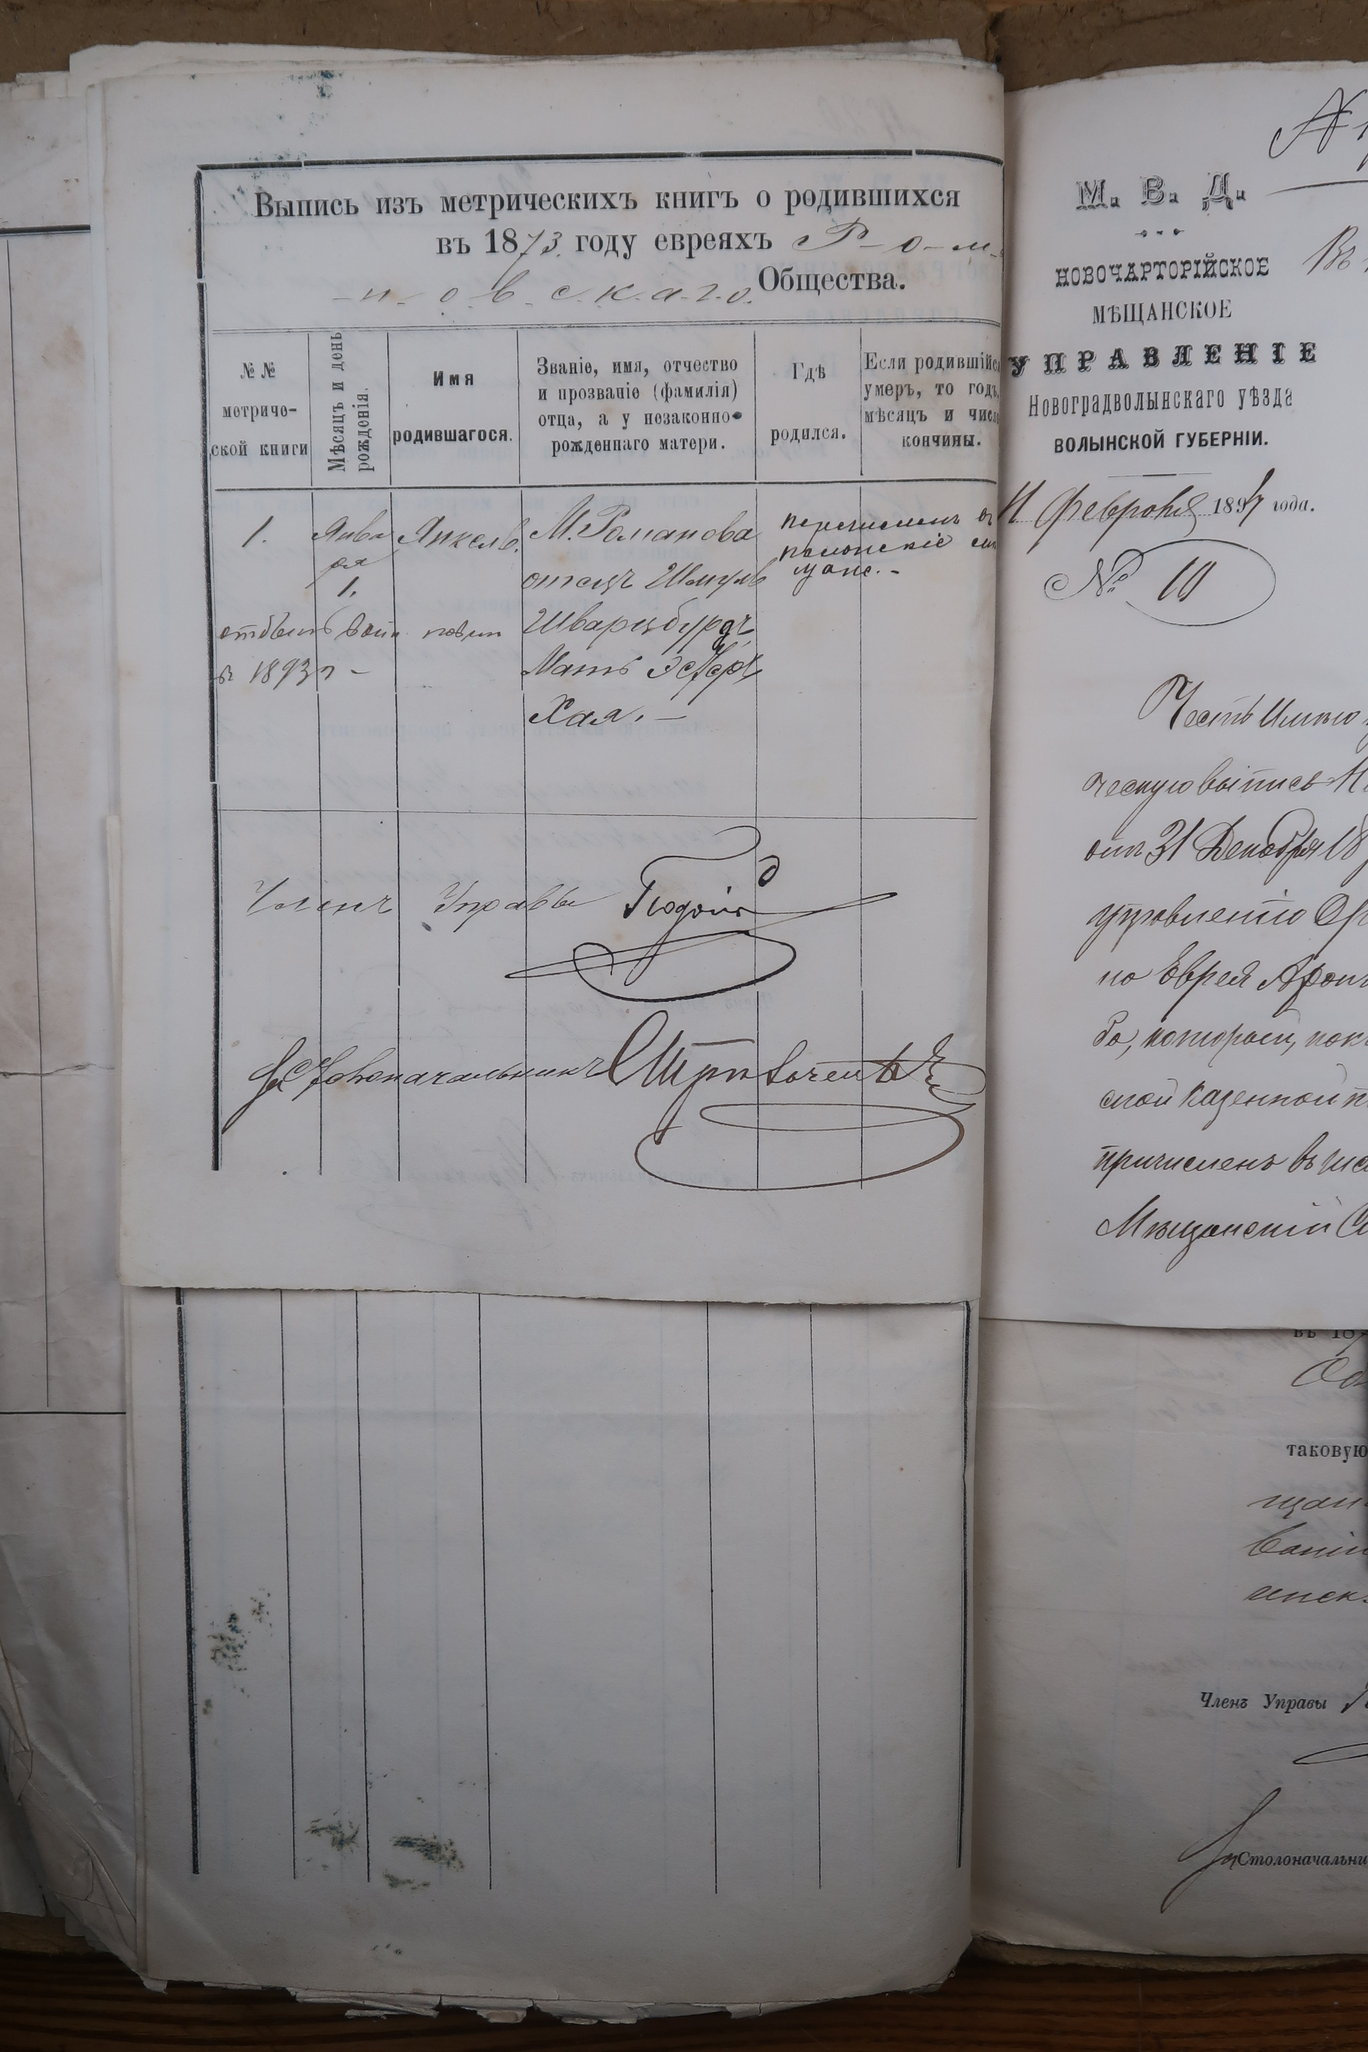 Выпись изъ метрическихъ книгъ о родившихся
въ 1873. году евреяхъ Р-о-м-
-н-о-в-с-к-а-г-о. Общества.
№№
метриче-
ской книги
Мѣсяцъ и день
рожденія.
Имя
родившагося.
Званіе, имя, отчество
и прозваніе (фамилія)
отца, а у незаконно-
рожденнаго матери.
Гдѣ
родился.
Если родившійся
умеръ, то годъ,
мѣсяцъ и число
кончины.
1.
Янва
ря
1.
Янкель.
М. Романова
отецъ Шмуль
Шварцбурдъ,
Мать Эстеръ
Хая. —
перечисленъ въ
полонскіе мѣ
щане. -
отбылъ воин повин
въ 1893 г -
Членъ Управы
Столоначальникъ
М. В. Д.
НОВОЧАРТОРІЙСКОЕ
МѢЩАНСКОЕ
УПРАВЛЕНІЕ
Новоградволынскаго уѣзда
ВОЛЫНСКОЙ ГУБЕРНІИ.
11 Февраля 1897 года.
№ 10
Въ
Честь имѣю
ческую выпись
отъ 31 Декабря 18
управленію
но Еврея
ва, который,
ской казенной п
причисленъ въ
Мѣщанскій
въ 18
таковую
щан
ваніи
Членъ Управы
Столоначальни